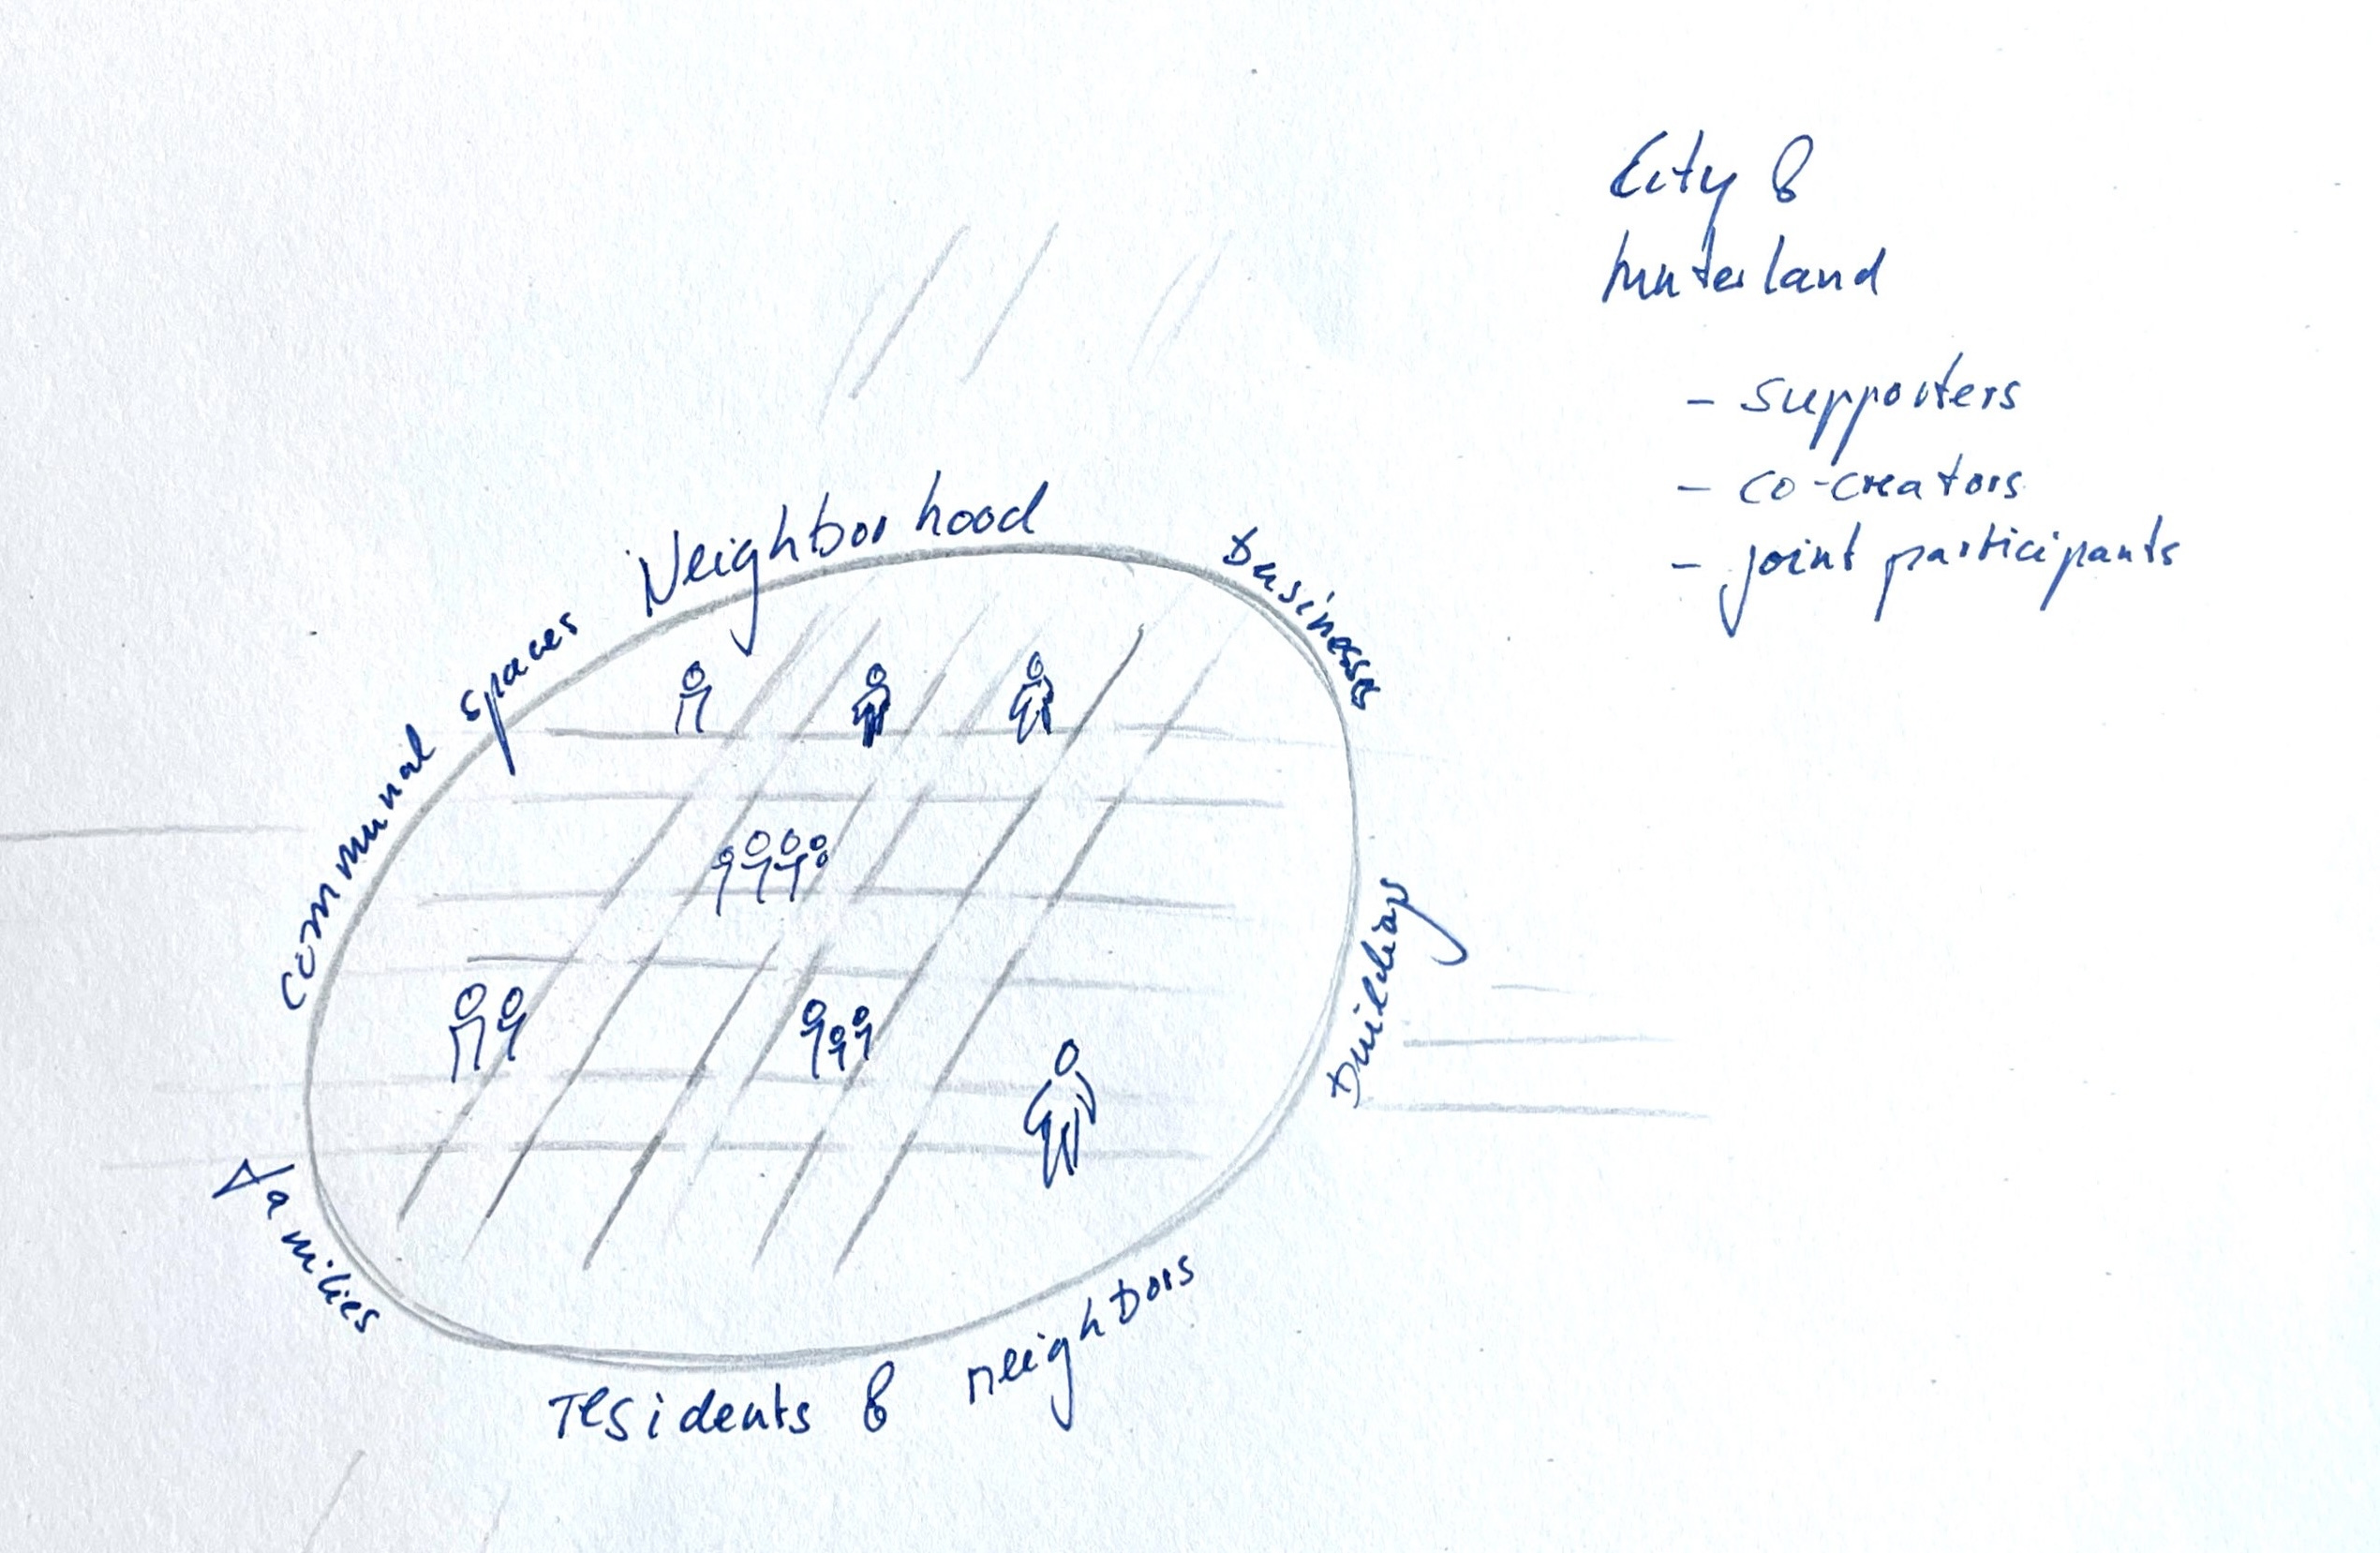 City &
hinterland
- supporters
- co-creators
- joint participants
Neighborhood
businesses
communal spaces
buildings
Families
residents & neighbors